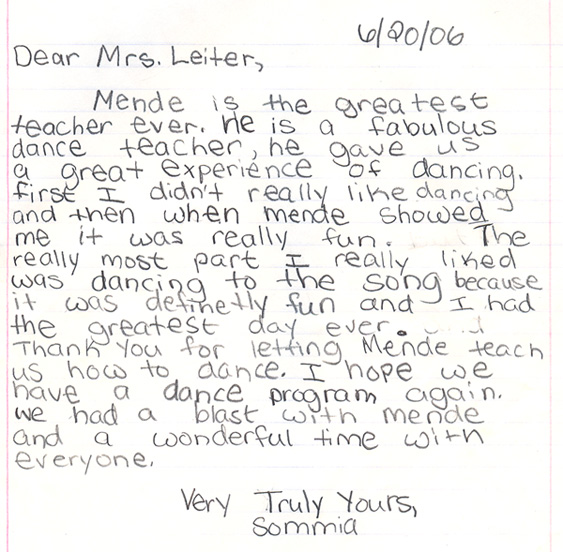 6/20/06
Dear Mrs. Leiter,
Mende is the greatest
teacher ever. He is a fabulous
dance teacher, he gave us
a great experience of dancing.
first I didn't really like dancing
and then when mende showed
me it was really fun. The
really most part I really liked
was dancing to the song because
it was definetly fun and I had
the greatest day ever.
Thank You for letting Mende teach
us how to dance. I hope we
have a dance program again.
we had a blast with mende
and a wonderful time with
everyone.
Very Truly Yours,
Sommia